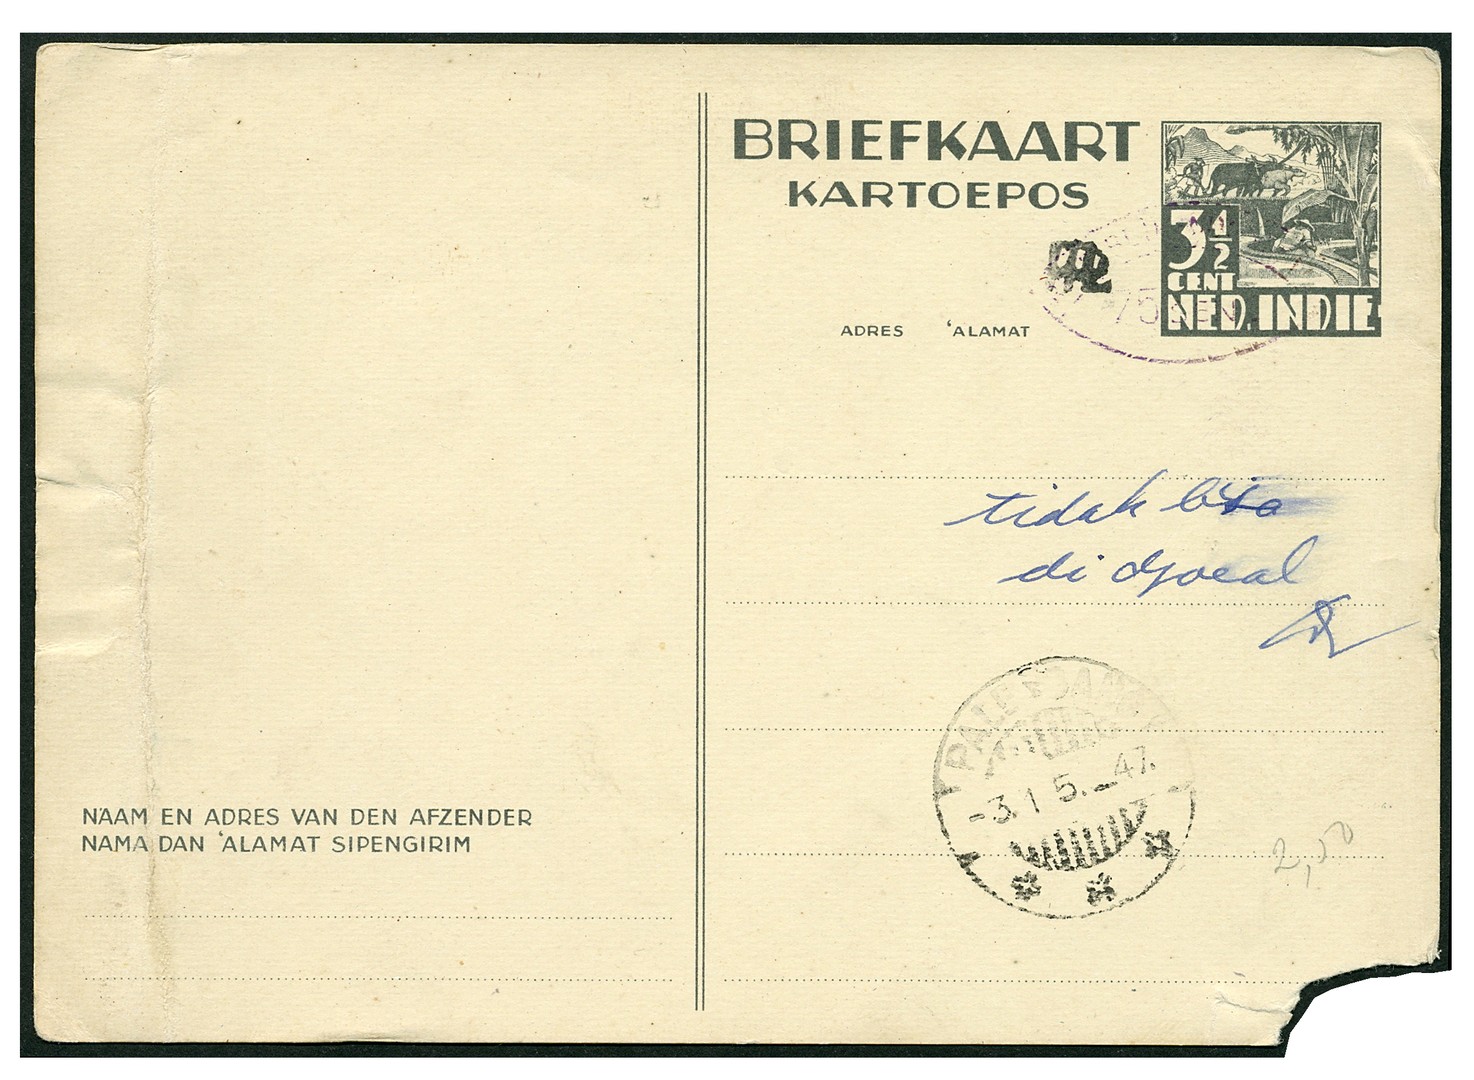 BRIEFKAART
KARTOEPOS
3 1/2
CENT
NED. INDIE
ADRES 'ALAMAT
tidak bisa
di djoeal
PALEMBANG
-3.1 5.-47.
2,50
NAAM EN ADRES VAN DEN AFZENDER
NAMA DAN 'ALAMAT SIPENGIRIM